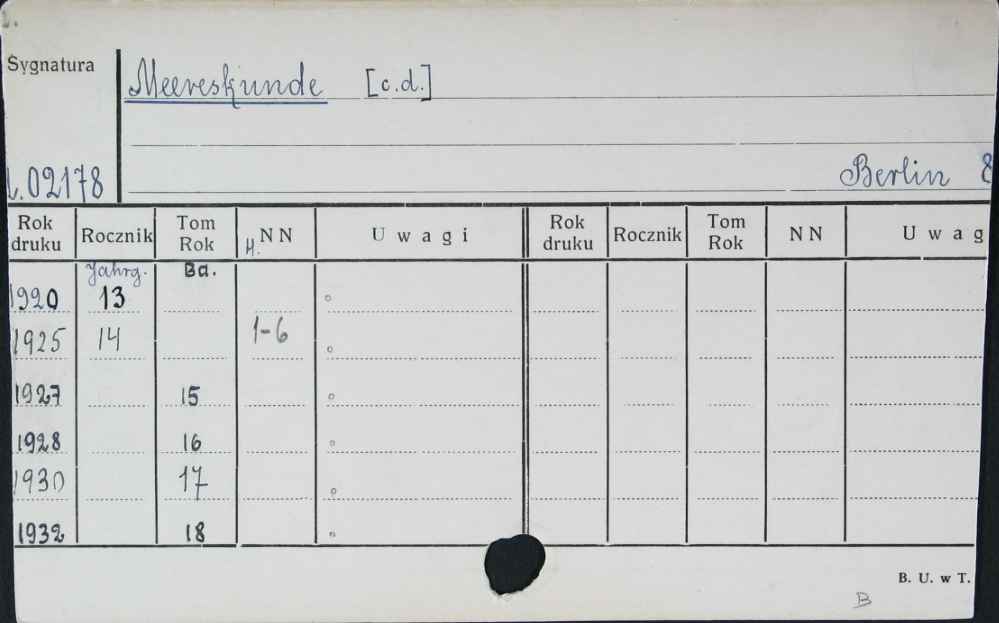 Sygnatura
Meereskunde [c.d.]
02178
Berlin 8
Rok druku Rocznik Tom Rok H. NN Uwagi Rok druku Rocznik Tom Rok NN Uwag
Jahrg. Bd.
1920 13
1925 14 1-6
1927 15
1928 16
1930 17
1932 18
B. U. w T.
B